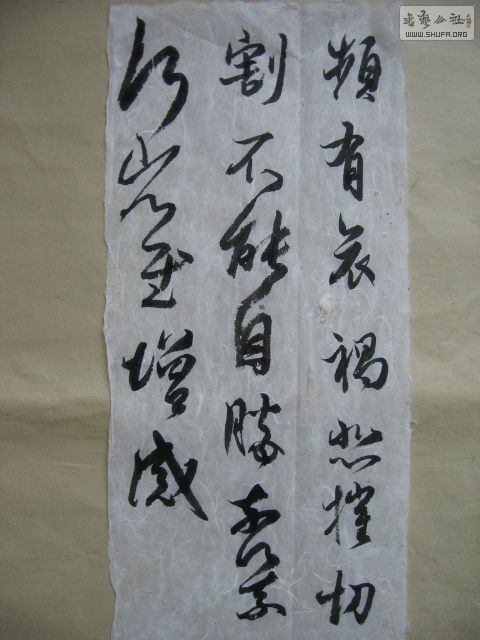 書藝公社
WWW.SHUFA.ORG
頻有哀禍悲摧切
割不能自勝奈何奈
何省慰增感